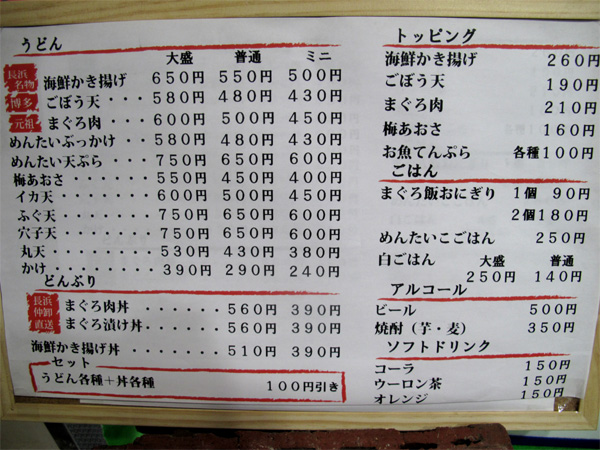 うどん
大盛 普通 ミニ
長浜名物 海鮮かき揚げ 650円 550円 500円
博多 ごぼう天・・・580円 480円 430円
元祖 まぐろ肉・・・600円 500円 450円
めんたいぶっかけ・・580円 480円 430円
めんたい天ぷら・・・750円 650円 600円
梅あおさ・・・・・・550円 450円 400円
イカ天・・・・・・・600円 500円 450円
ふぐ天・・・・・・・750円 650円 600円
穴子天・・・・・・・750円 650円 600円
丸天・・・・・・・・530円 430円 380円
かけ・・・・・・・・390円 290円 240円
どんぶり
長浜仲卸直送
まぐろ肉丼・・・・・560円 390円
まぐろ漬け丼・・・・560円 390円
海鮮かき揚げ丼・・・・・510円 390円
セット
うどん各種+丼各種 100円引き
トッピング
海鮮かき揚げ 260円
ごぼう天 190円
まぐろ肉 210円
梅あおさ 160円
お魚てんぷら 各種100円
ごはん
まぐろ飯おにぎり 1個 90円
2個180円
めんたいこごはん 250円
白ごはん 大盛 普通
250円 140円
アルコール
ビール 500円
焼酎(芋・麦) 350円
ソフトドリンク
コーラ 150円
ウーロン茶 150円
オレンジ 150円